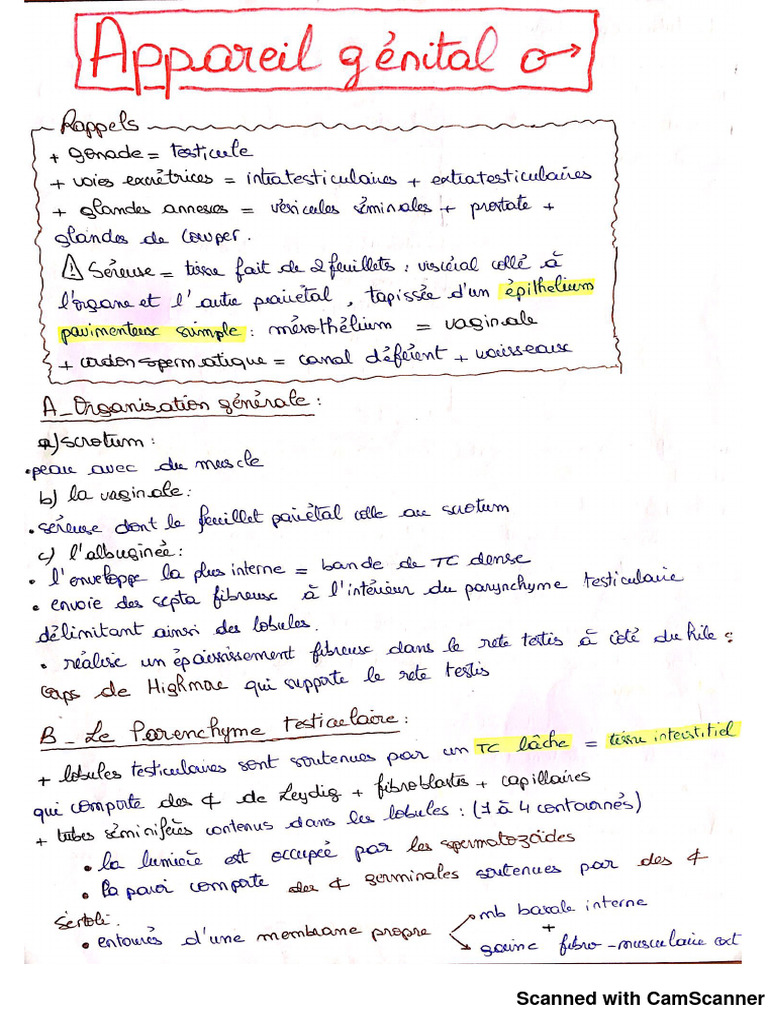 Appareil génital ♂
Rappels
+ gonade = testicule
+ voies excrétrices = intratesticulaires + extratesticulaires
+ glandes annexes = vésicules séminales + prostate +
glandes de cowper.
⚠ Séreuse = tissu fait de 2 feuillets : viscéral collé à
l'organe et l'autre pariétal, tapissée d'un épithelium
pavimenteux simple : mésothélium = vaginale
+ cordon spermatique = canal déférent + vaisseaux
A_Organisation générale :
a) scrotum :
• peau avec du muscle
b) la vaginale :
• séreuse dont le feuillet pariétal colle au scrotum
c) l'albuginée :
• l'enveloppe la plus interne = bande de TC dense
• envoie des septa fibreuse à l'intérieur du parynchyme testiculaire
délimitant ainsi des lobules.
• réalise un épaississement fibreuse dans le rete testis à côté du hile :
corps de Highmore qui supporte le rete testis
B_ Le Parenchyme testiculaire :
+ lobules testiculaires sont soutenues par un TC lâche = tissu interstitiel
qui comporte des ¢ de Leydig + fibroblastes + capillaires
+ tubes séminifères contenus dans les lobules : (1 à 4 contournés)
• la lumière est occupée par les spermatozoïdes
• la paroi comporte des ¢ germinales soutenues par des ¢
Sertoli.
• entourés d'une membrane propre mb basale interne
+
gaine fibro-musculaire ext
Scanned with CamScanner